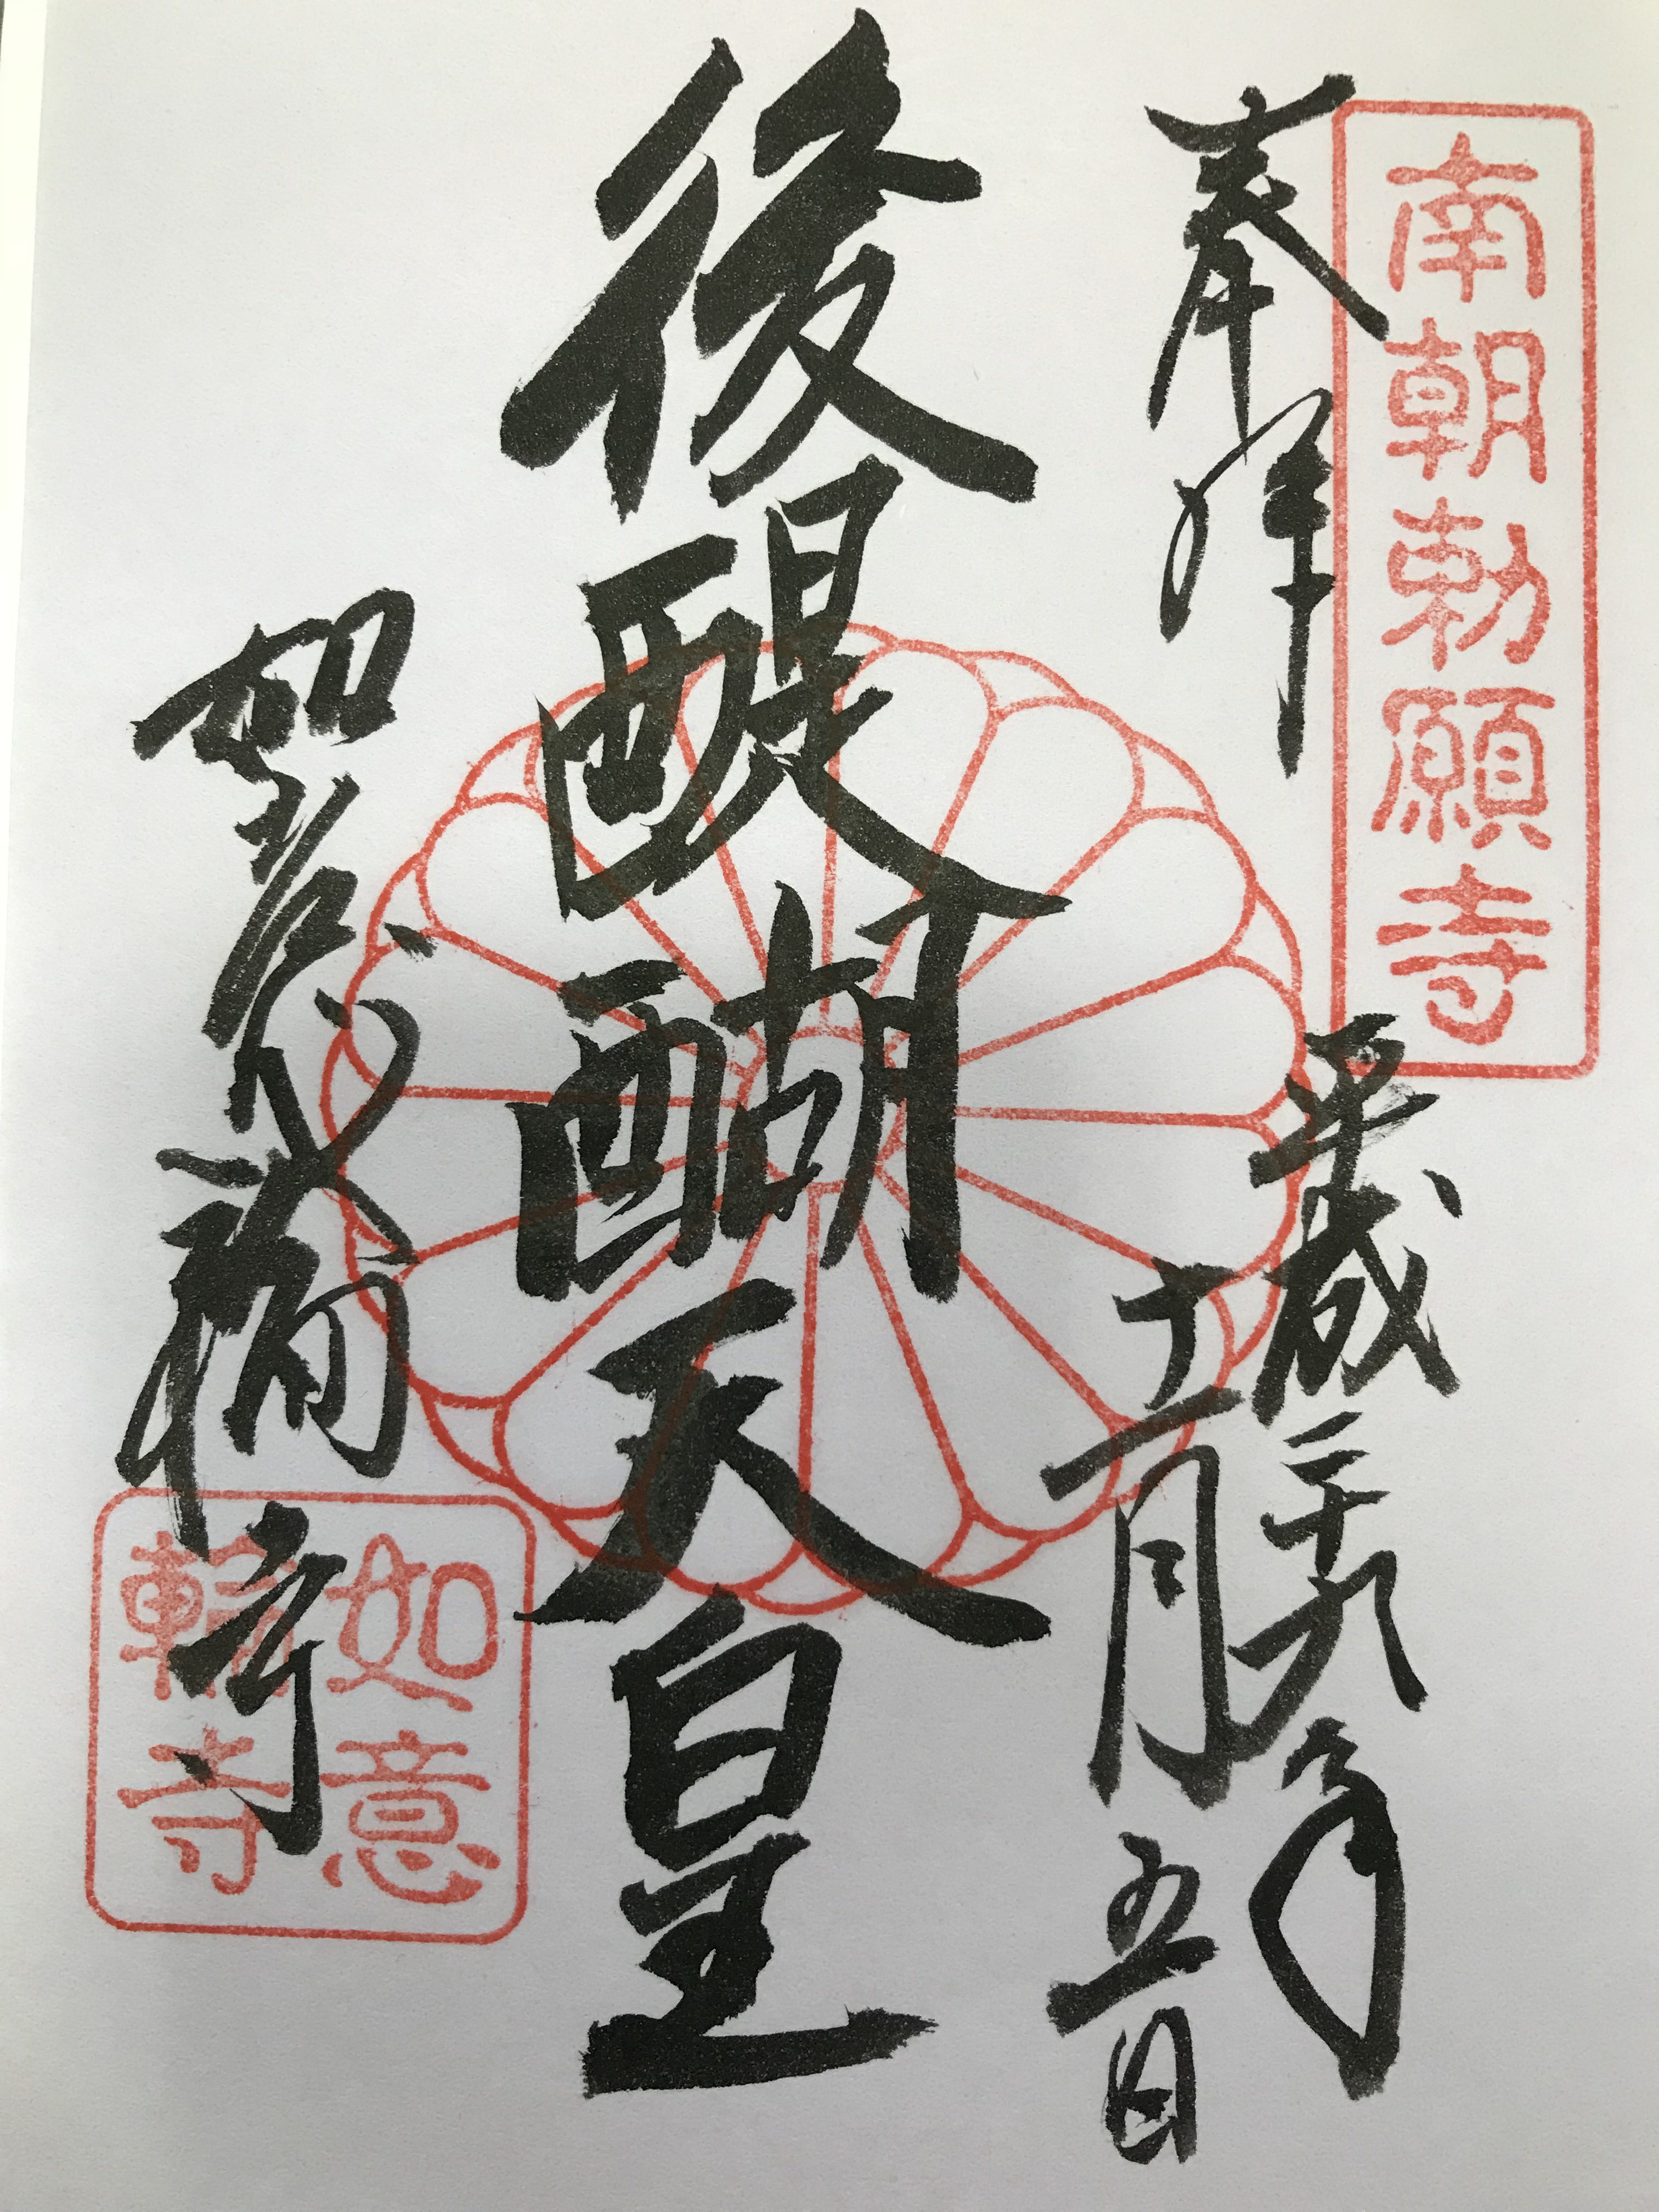 南朝勅願寺
奉拝
平成二十九年
十二月五日
後醍醐天皇
如意輪寺
如意
輪寺